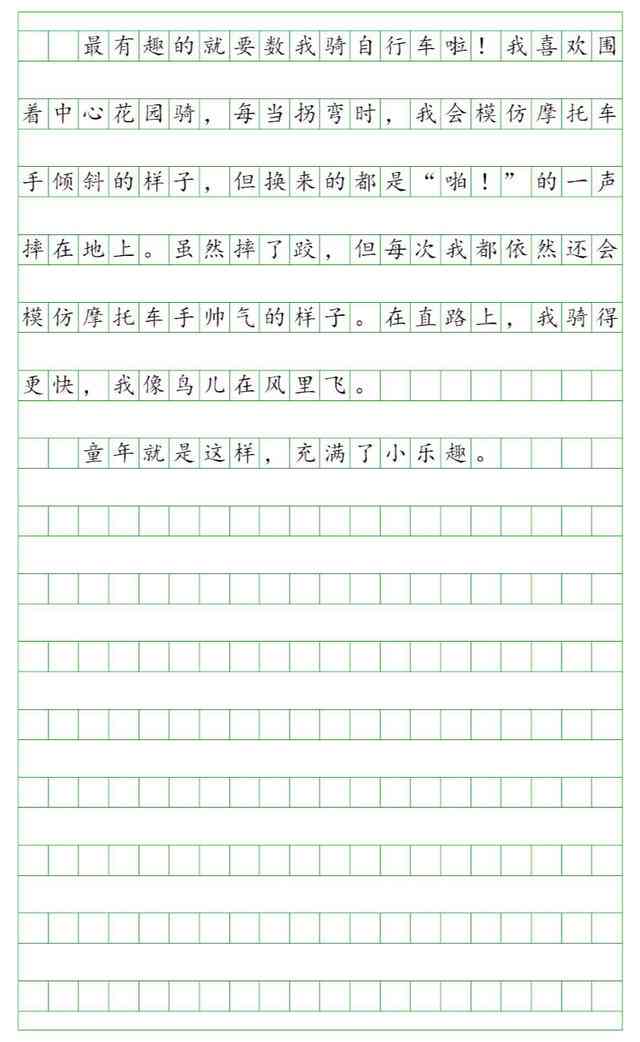 最有趣的就要数我骑自行车啦！我喜欢围
着中心花园骑，每当拐弯时，我会模仿摩托车
手倾斜的样子，但换来的都是“啪！”的一声
摔在地上。虽然摔了跤，但每次我都依然还会
模仿摩托车手帅气的样子。在直路上，我骑得
更快，我像鸟儿在风里飞。
童年就是这样，充满了小乐趣。